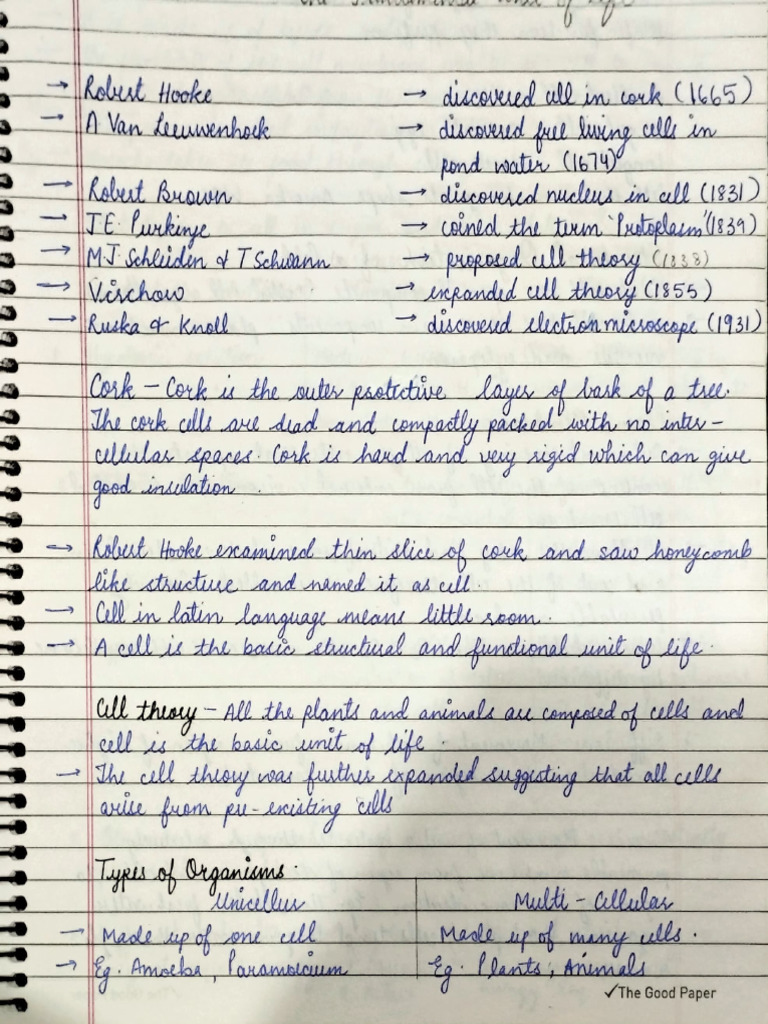 The Fundamental Unit of Life
→ Robert Hooke → discovered cell in cork (1665)
→ A Van Leeuwenhoek → discovered free living cells in
pond water (1674)
→ Robert Brown → discovered nucleus in cell (1831)
→ J.E. Purkinje → coined the term "Protoplasm" (1839)
→ M.J. Schleiden & T Schwann → proposed cell theory (1838)
→ Virchow → expanded cell theory (1855)
→ Ruska & Knoll → discovered electron microscope (1931)
Cork – Cork is the outer protective layer of bark of a tree.
The cork cells are dead and compactly packed with no inter-
cellular spaces. Cork is hard and very rigid which can give
good insulation.
→ Robert Hooke examined thin slice of cork and saw honeycomb
like structure and named it as cell.
→ Cell in latin language means little room.
→ A cell is the basic structural and functional unit of life.
Cell theory – All the plants and animals are composed of cells and
cell is the basic unit of life
→ The cell theory was further expanded suggesting that all cells
arise from pre-existing cells
Types of Organisms.
Unicellus Multi-Cellular
→ Made up of one cell Made up of many cells.
→ Eg. Amoeba, Paramoicium Eg. Plants, Animals
✓The Good Paper